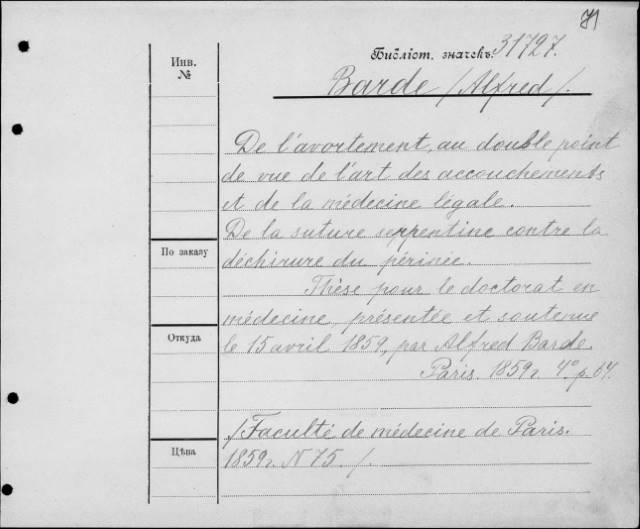 71
Инв.
№
Библіот. значекъ: 31727.
Barde /Alfred/.
De l'avortement, au double point
de vue de l'art des accouchements
et de la médecine légale.
De la suture serpentine contre la
По заказу
déchirure du périnée.
Thèse pour le doctorat en
médecine, présentée et soutenue
Откуда
le 15 avril 1859, par Alfred Barde.
Paris. 1859г. 4° p. 64.
/Faculté de médecine de Paris.
Цѣна
1859г. N 75. /.